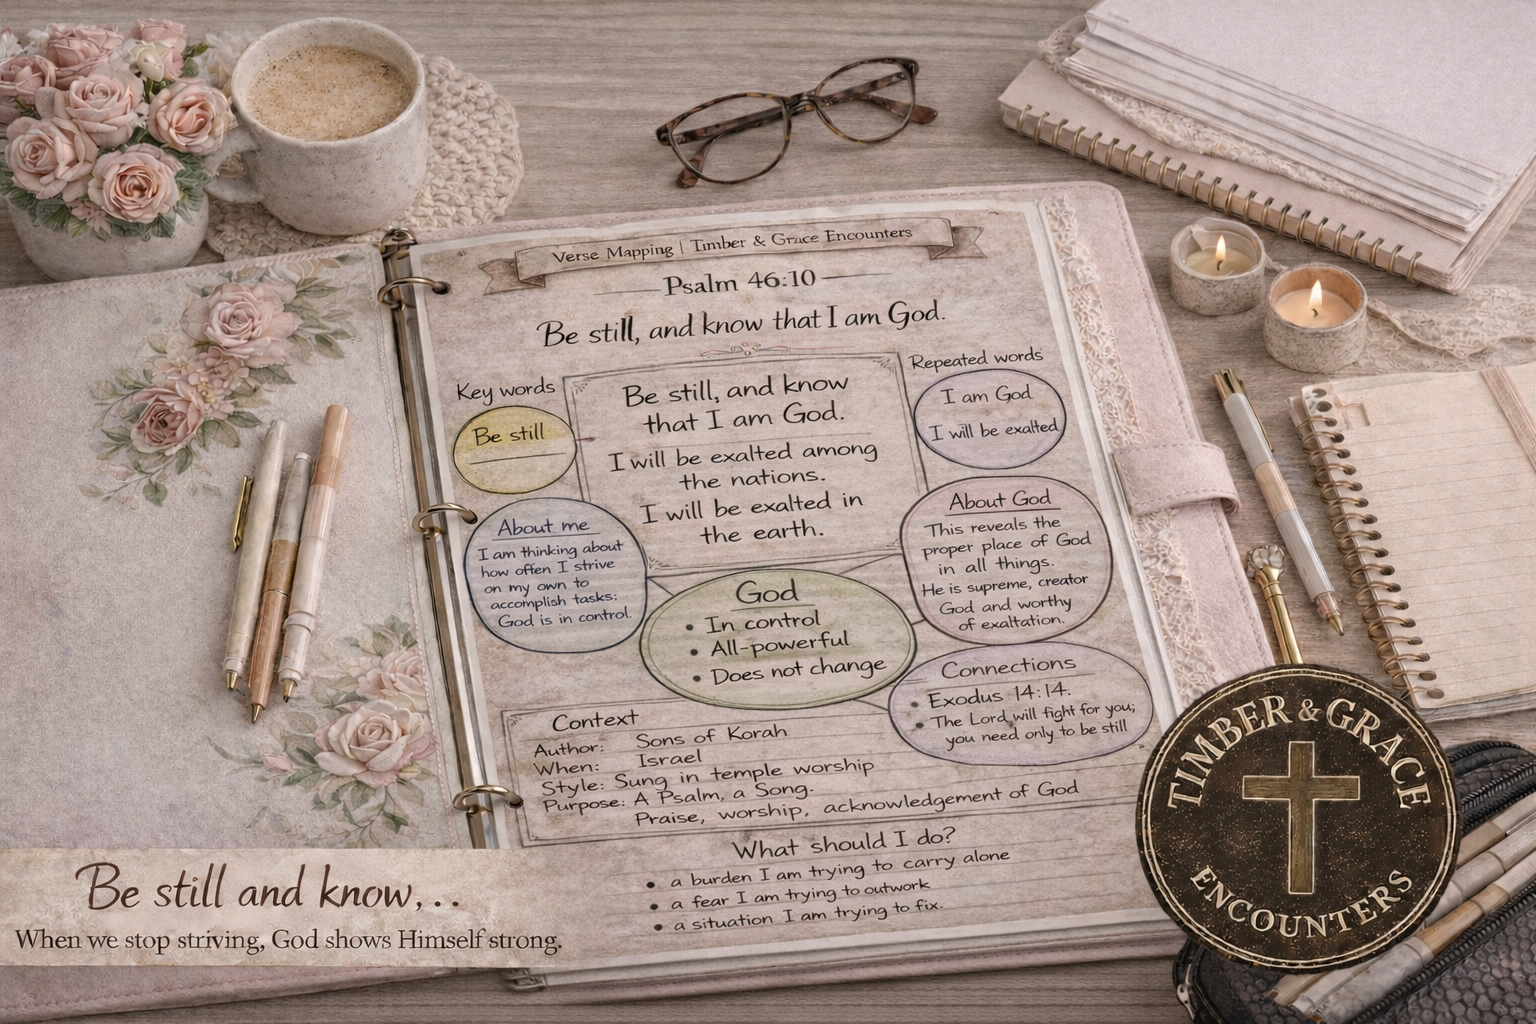 Verse Mapping | Timber & Grace Encounters
Psalm 46:10
Be still, and know that I am God.
Key words
Be still
Be still, and know
that I am God.
I will be exalted among
the nations.
I will be exalted in
the earth.
Repeated words
I am God
I will be exalted
About me
I am thinking about
how often I strive
on my own to
accomplish tasks:
God is in control.
God
• In control
• All-powerful
• Does not change
About God
This reveals the
proper place of God
in all things.
He is supreme, creator
God and worthy
of exaltation.
Connections
• Exodus 14:14.
• The Lord will fight for you;
you need only to be still
Context
Author: Sons of Korah
When: Israel
Style: Sung in temple worship
Purpose: A Psalm, a Song.
Praise, worship, acknowledgement of God
What should I do?
• a burden I am trying to carry alone
• a fear I am trying to outwork
• a situation I am trying to fix.
Be still and know,..
When we stop striving, God shows Himself strong.
TIMBER & GRACE
ENCOUNTERS